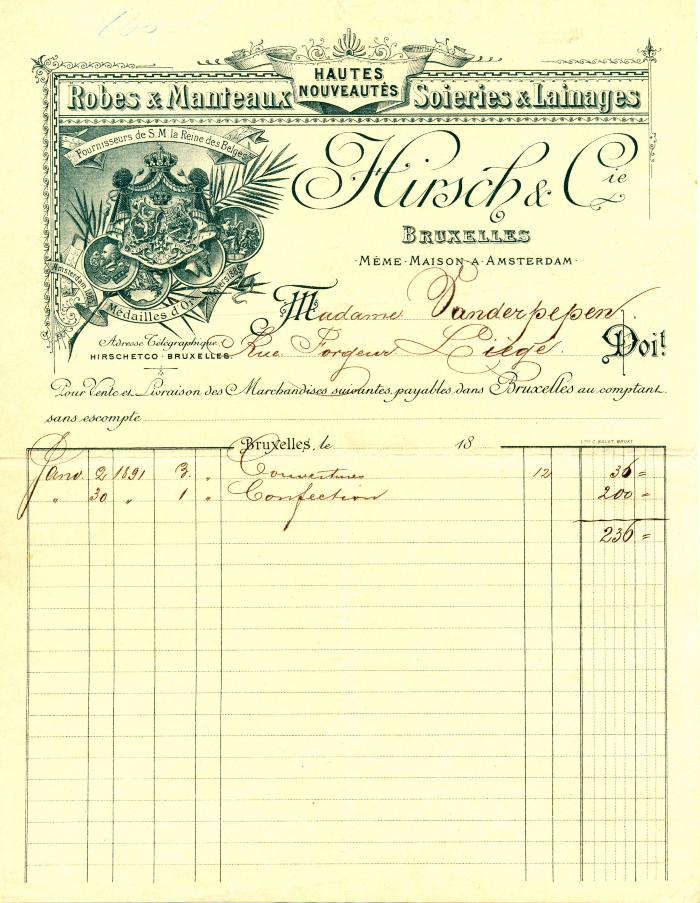 HAUTES
NOUVEAUTÉS
Robes & Manteaux
Soieries & Lainages
Fournisseurs de S.M. la Reine des Belges
Hirsch & Cie
BRUXELLES
MÊME · MAISON · A · AMSTERDAM
Amsterdam 1883
Médailles d'Or
Madame Vanderpepen
Adresse Télégraphique
HIRSCHETCO · BRUXELLES.
Rue Forgeur Liége.
Doit
Pour Vente et Livraison des Marchandises suivantes, payables dans Bruxelles au comptant
sans escompte
Bruxelles, le 18
Janv. 2 1891 3 " Couvertures 12 36 =
" 30 " 1 " Confection 200 =
236 =